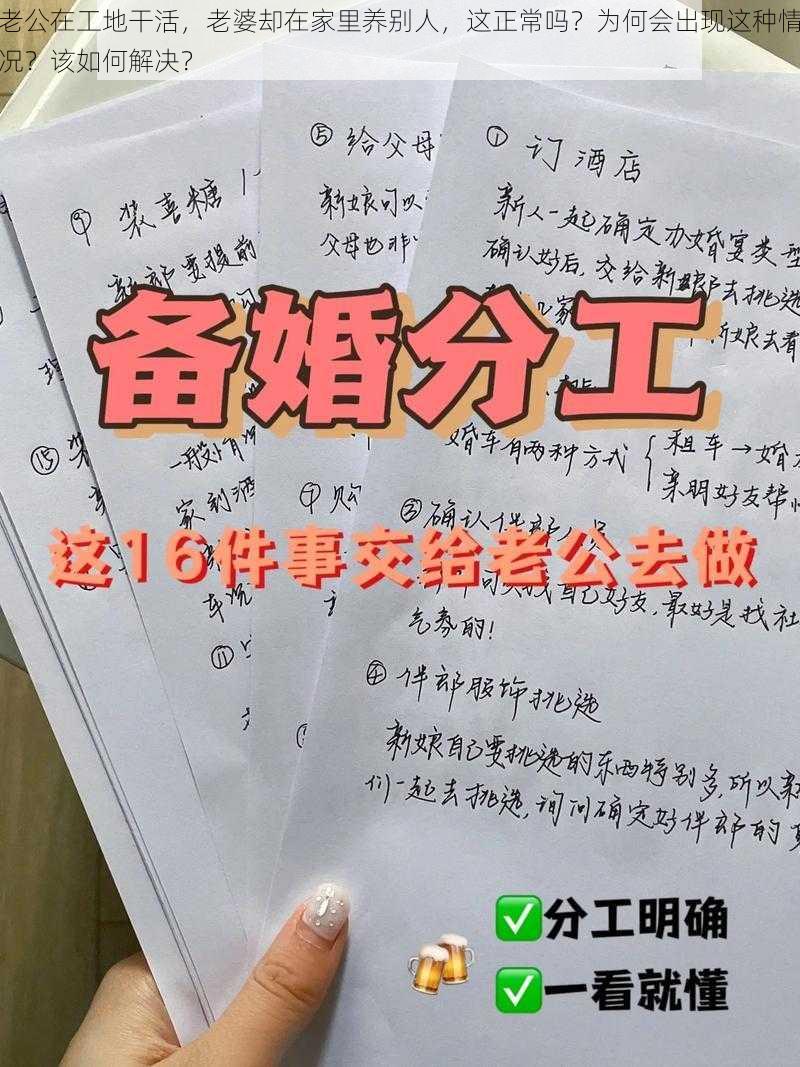 老公在工地干活，老婆却在家里养别人，这正常吗？为何会出现这种情
况？该如何解决？
备婚分工
这16件事交给老公去做
① 订酒店
新人一起确定办婚宴类型
确认好后，交给新郎去挑选
婚车有两种方式
租车→婚
亲朋好友帮
③ 确认伴郎人员
自己好友，最好是找社
气氛的！
④ 伴郎服饰挑选
新娘自己要挑选的东西特别多，所以新
们一起去挑选，询问确定好伴郎的
⑤ 给父母
新娘可以
父母也非
⑦ 购
⑨ 装喜糖
新郎要提前
一般如有
家到酒
车况
⑪
⑮ 装
分工明确
一看就懂